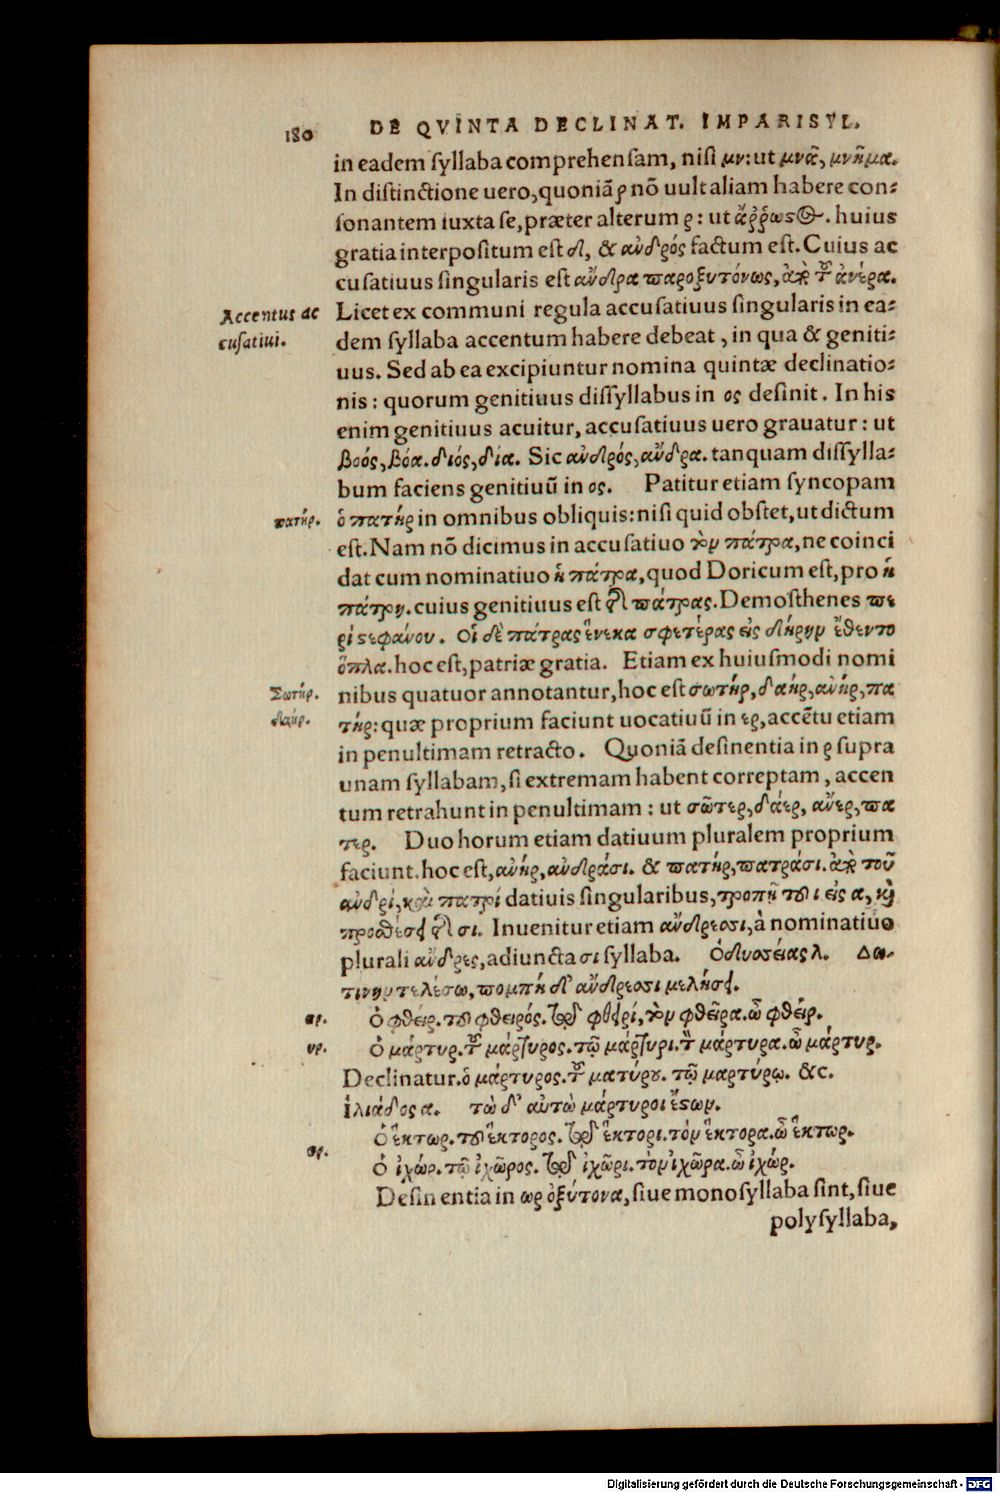 180 DE QVINTA DECLINAT. IMPARISYL.
in eadem syllaba comprehensam, nisi μν: ut μνᾶ, μνῆμα.
In distinctione uero, quoniã ρ nõ uult aliam habere con-
sonantem iuxta se, præter alterum ρ: ut ἄῤῥωστος. huius
gratia interpositum est δ, & ἀνδρός factum est. Cuius ac
cusatiuus singularis est ἄνδρα παροξυτόνως, ἀπὸ τοῦ ἀνέρα.
Accentus ac Licet ex communi regula accusatiuus singularis in ea-
cusatiui. dem syllaba accentum habere debeat, in qua & geniti-
uus. Sed ab ea excipiuntur nomina quintæ declinatio-
nis: quorum genitiuus dissyllabus in ος desinit. In his
enim genitiuus acuitur, accusatiuus uero grauatur: ut
βοός, βόα. διός, δία. Sic ἀνδρός, ἄνδρα. tanquam dissylla-
bum faciens genitiuũ in ος. Patitur etiam syncopam
πατήρ. ὁ πατήρ in omnibus obliquis: nisi quid obstet, ut dictum
est. Nam nõ dicimus in accusatiuo τὸν πάτρα, ne coinci
dat cum nominatiuo ἡ πάτρα, quod Doricum est, pro ἡ
πάτρη. cuius genitiuus est τῆς πάτρας. Demosthenes πε
ρὶ στεφάνου. Οἱ δὲ πάτρας ἕνεκα σφετέρας εἰς δῆριν ἔθεντο
ὅπλα. hoc est, patriæ gratia. Etiam ex huiusmodi nomi
Σωτήρ. nibus quatuor annotantur, hoc est σωτήρ, δαήρ, ἀνήρ, πα
δαήρ. τήρ: quæ proprium faciunt uocatiuũ in ερ, accẽtu etiam
in penultimam retracto. Quoniã desinentia in ρ supra
unam syllabam, si extremam habent correptam, accen
tum retrahunt in penultimam: ut σῶτερ, δάερ, ἄνερ, πα
τερ. Duo horum etiam datiuum pluralem proprium
faciunt. hoc est, ἀνήρ, ἀνδράσι. & πατήρ, πατράσι. ἀπὸ τοῦ
ἀνδρί, καὶ πατρί datiuis singularibus, τροπῇ τοῦ ι εἰς α, καὶ
προσθέσει τῆς σι. Inuenitur etiam ἄνδρεσσι, à nominatiuo
plurali ἄνδρες, adiuncta σι syllaba. Ὀδυσσείας λ. Δω-
τίνην τελέσω, πομπὴ δ' ἄνδρεσσι μελήσει.
ηρ. Ὁ φθείρ. τοῦ φθειρός. τῷ φθειρί, τὸν φθεῖρα. ὦ φθείρ.
υρ. Ὁ μάρτυρ. τοῦ μάρτυρος. τῷ μάρτυρι. τὸν μάρτυρα. ὦ μάρτυρ.
Declinatur. ὁ μάρτυρος. τοῦ ματύρου. τῷ μαρτύρῳ. &c.
ἰλιάδος α. τὼ δ' αὐτὼ μάρτυροι ἔστων.
Ὁ ἕκτωρ. τοῦ ἕκτορος. τῷ ἕκτορι. τὸν ἕκτορα. ὦ ἕκτωρ.
ορ. Ὁ ἰχώρ. τοῦ ἰχῶρος. τῷ ἰχῶρι. τὸν ἰχῶρα. ὦ ἰχώρ.
Desinentia in ωρ ὀξύτονα, siue monosyllaba sint, siue
polysyllaba,
Digitalisierung gefördert durch die Deutsche Forschungsgemeinschaft - DFG